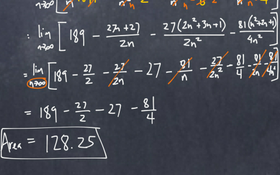 : lim n→∞ [ 189 - 27n+27/2n - 27(2n²+3n+1)/2n² - 81(n²+2n+1)/4n² ]
: lim n→∞ [ 189 - 27/2 - 27/2n - 27 - 81/n - 27/2n² - 81/4 - 81/2n - 81/4n² ]
= 189 - 27/2 - 27 - 81/4
Area = 128.25